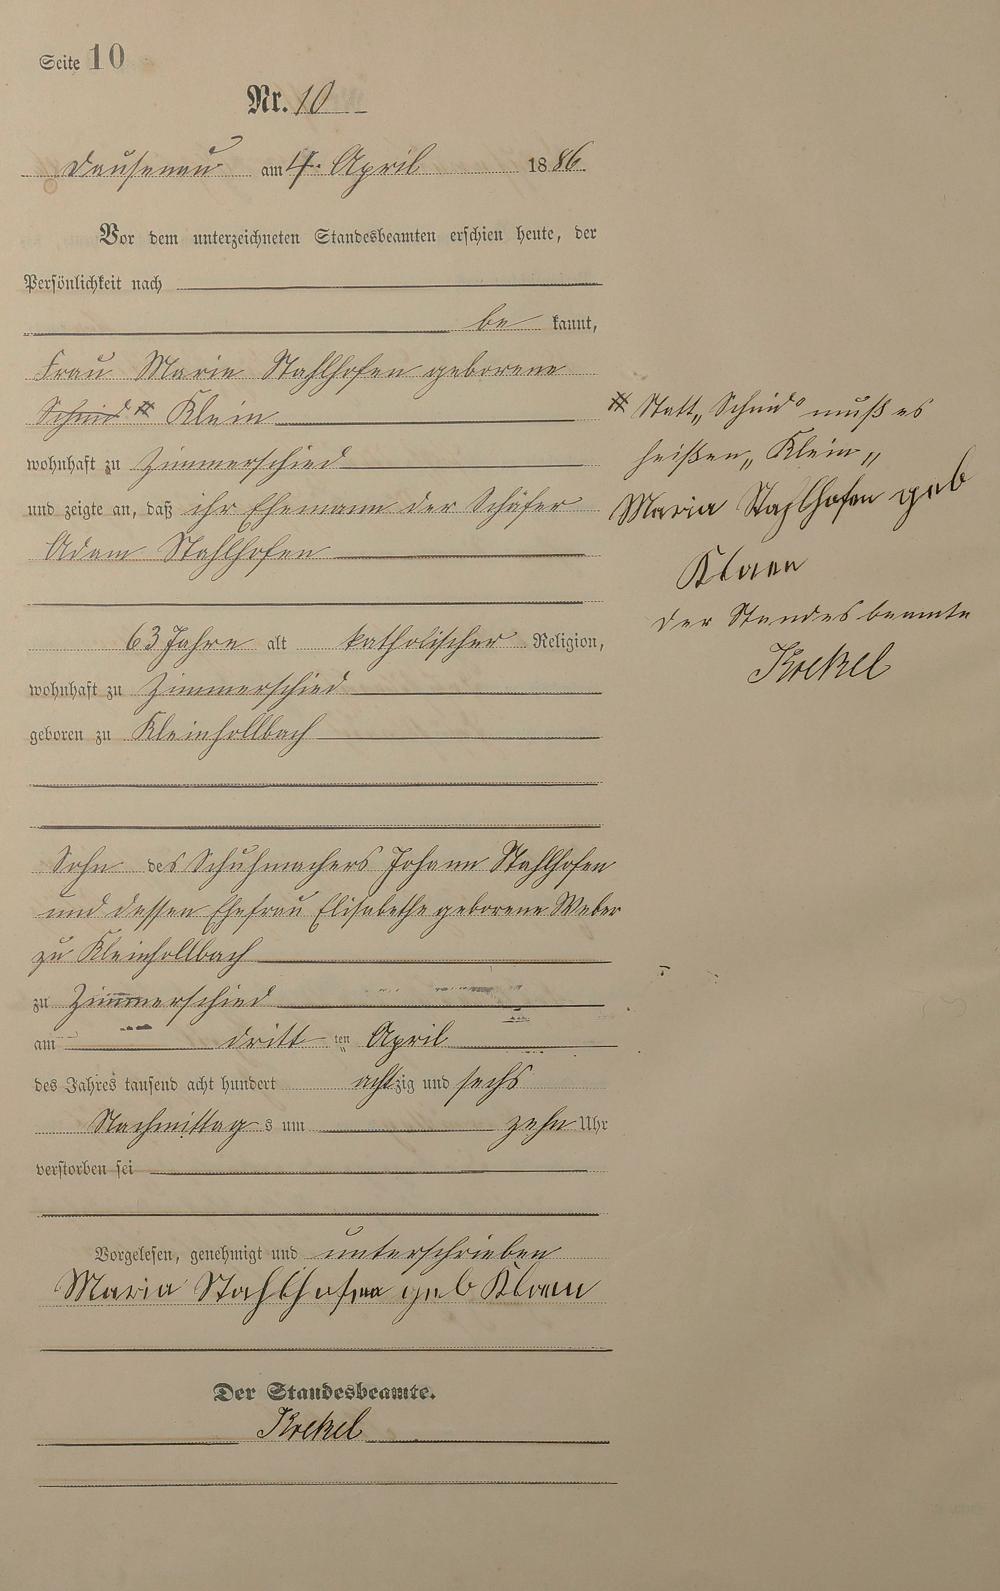 Seite 10
Nr. 10
Dausenau am 4. April 1886.
Vor dem unterzeichneten Standesbeamten erschien heute, der
Persönlichkeit nach
be kannt,
Frau Maria Stahlhofen geborene
Schmid # Klein
wohnhaft zu Zimmerschied
und zeigte an, daß ihr Ehemann der Schäfer
Adam Stahlhofen
63 Jahre alt katholischer Religion,
wohnhaft zu Zimmerschied
geboren zu Kleinhollbach
Sohn des Schuhmachers Johann Stahlhofen
und dessen Ehefrau Elisabethe geborene Weber
zu Kleinhollbach
zu Zimmerschied
am dritt ten April
des Jahres tausend acht hundert achtzig und sechs
Nachmittag s um zehn Uhr
verstorben sei
Vorgelesen, genehmigt und unterschrieben
Maria Stahlhofen geb Klaen
Der Standesbeamte.
Krekel
# Statt „Schmid" muß es
heißen „Klein„
Maria Stahlhofen geb
Klaen
Der Standesbeamte
Krekel